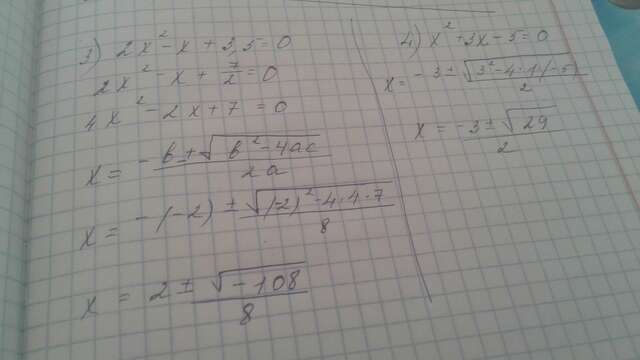 3) 2x² - x + 3,5 = 0
2x² - x + 7/2 = 0
4x² - 2x + 7 = 0
x = -b ± √(b² - 4ac) / 2a
x = -(-2) ± √((-2)² - 4·4·7) / 8
x = 2 ± √(-108) / 8
4) x² + 3x - 5 = 0
x = -3 ± √(3² - 4·1·(-5)) / 2
x = -3 ± √29 / 2